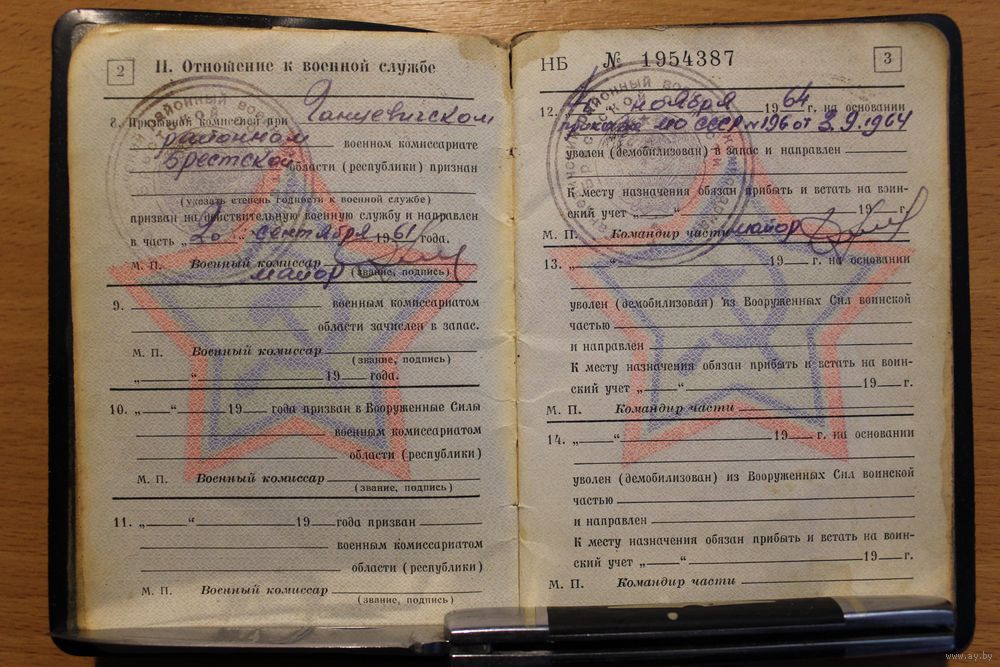 2
II. Отношение к военной службе
8. Призывной комиссией при Ганцевичском
районном военном комиссариате
Брестской области (республики) признан
(указать степень годности к военной службе)
призван на действительную военную службу и направлен
в часть „20“ сентября 1961 года.
М. П. Военный комиссар
майор (звание, подпись)
9. военным комиссариатом
области зачислен в запас.
М. П. Военный комиссар
(звание, подпись)
„ “ 19 года.
10. „ “ 19 года призван в Вооруженные Силы
военным комиссариатом
области (республики)
М. П. Военный комиссар
(звание, подпись)
11. „ “ 19 года призван
военным комиссариатом
области (республики)
М. П. Военный комиссар
(звание, подпись)
НБ № 1954387
3
12. ноября 1964 г. на основании
приказа МО СССР №196 от 3.9.1964
уволен (демобилизован) в запас и направлен
К месту назначения обязан прибыть и встать на воин-
ский учет „ “ 19 г.
М. П. Командир части майор
13. „ “ 19 г. на основании
уволен (демобилизован) из Вооруженных Сил воинской
частью
и направлен
К месту назначения обязан прибыть и встать на воин-
ский учет „ “ 19 г.
М. П. Командир части
14. „ “ 19 г. на основании
уволен (демобилизован) из Вооруженных Сил воинской
частью
и направлен
К месту назначения обязан прибыть и встать на воин-
ский учет „ “ 19 г.
М. П. Командир части
www.ay.by